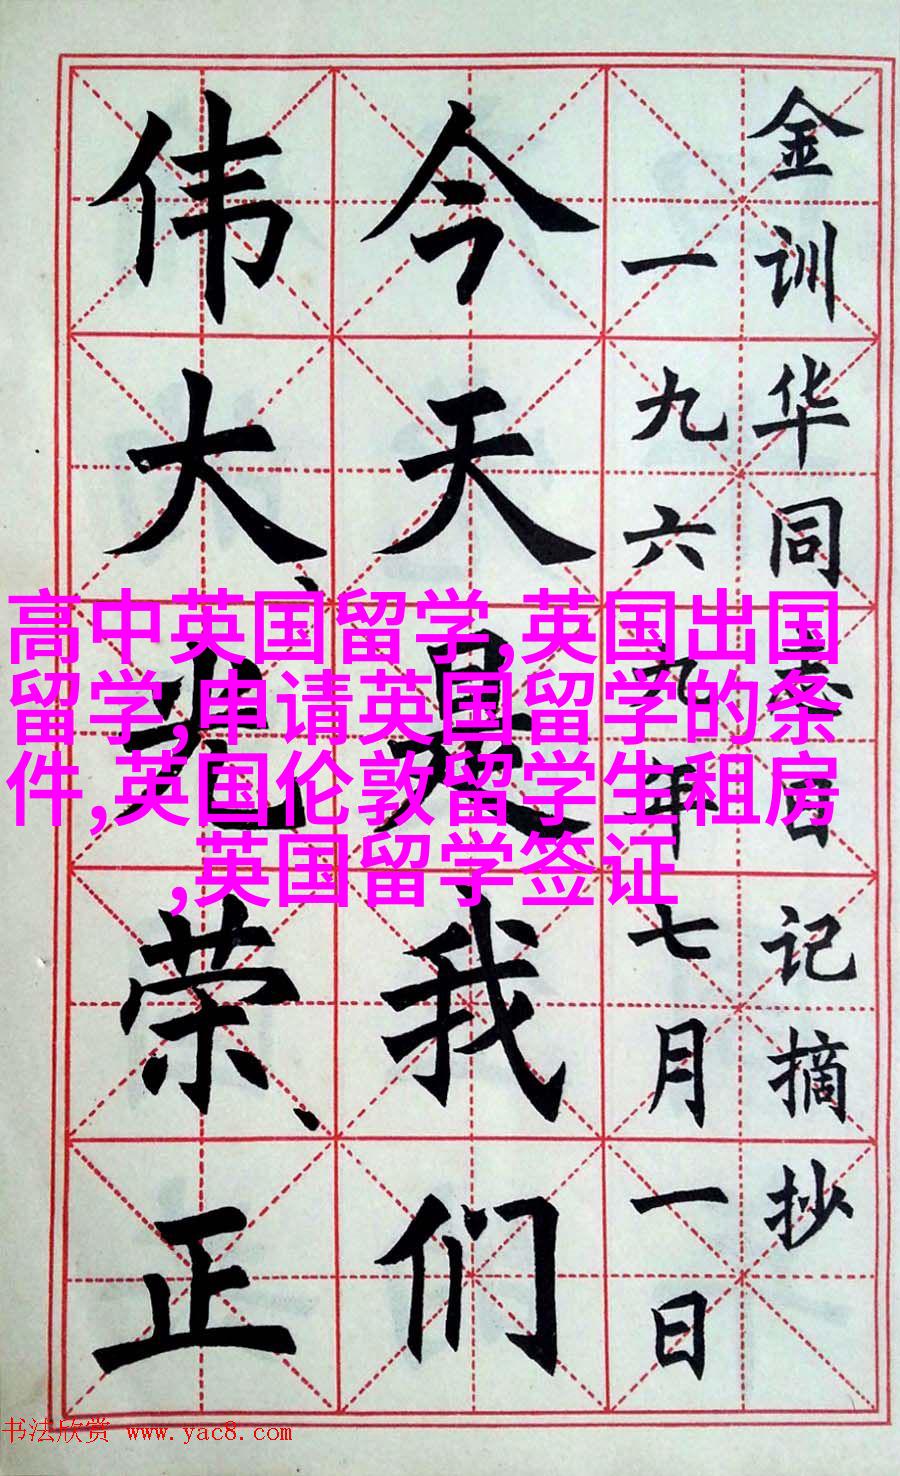 金训华同志日记摘抄
一九六九年七月一日
今天是我们
伟大、光荣、正
高中英国留学,英国出国
留学,申请英国留学的条
件,英国伦敦留学生租房
,英国留学签证
书法欣赏 www.yac8.com